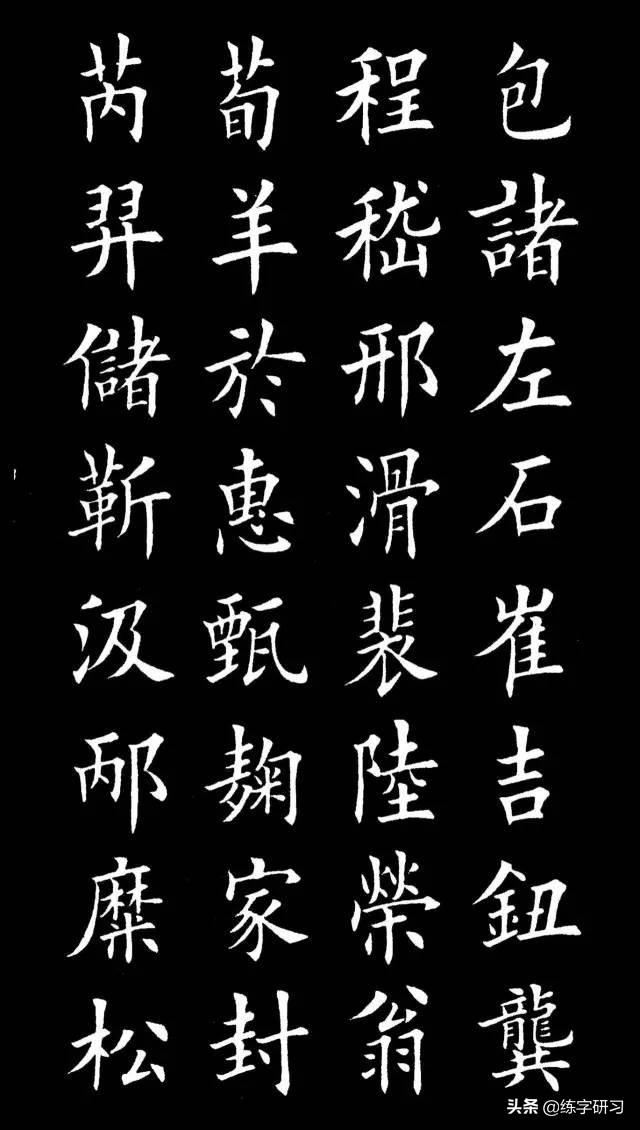 包諸左石崔吉鈕龔
程嵇邢滑裴陸榮翁
荀羊於惠甄麴家封
芮羿儲靳汲邴糜松
头条 @练字研习